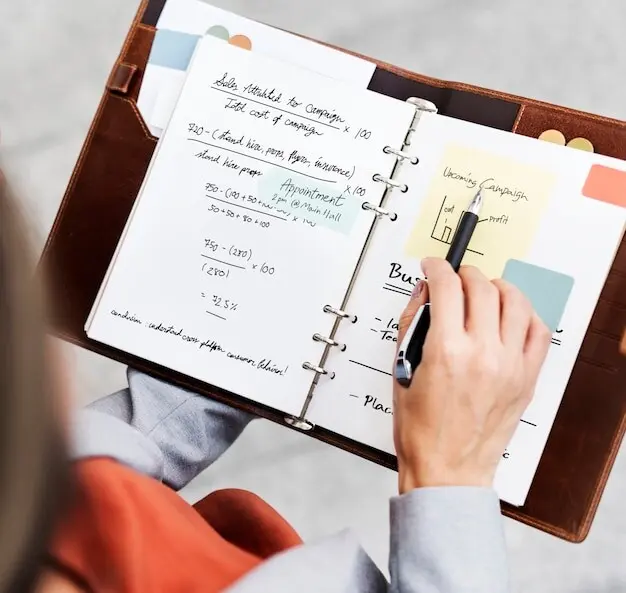 Sales Attributed to Campaign
Total cost of campaign × 100
720 - (stand hire, props, flyers, insurance)
× 100
stand hire props
Appointment
2 pm @ Main Hall
750 - (100 + 50 +
50 + 50 + 80 + 100
750 - (280)
(280) × 100
= 72.5%
conclusion : understand cross platform consumer behavior!
Upcoming Campaign
cost
profit
Bus
- Plac